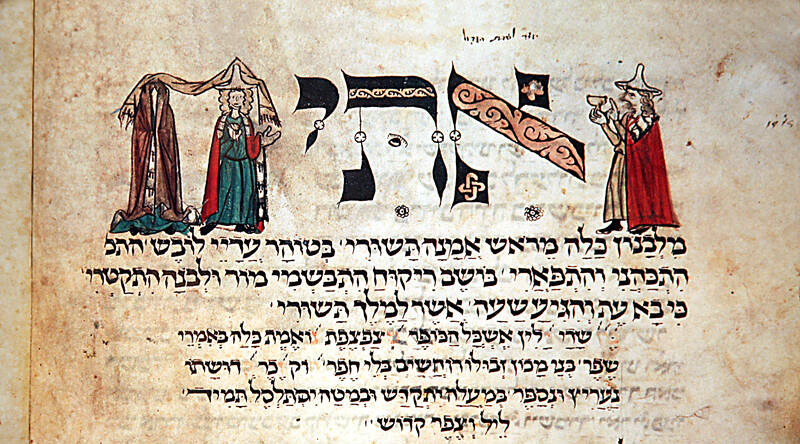 אתי
מלבנון כלה מראש אמנה תשורי' בטוהר עדיי לובש התכ
התכהני והתפארי' בושם ריקוח התבשמי מור ולבנה התקטרי'
כי בא עת והגיע שעה' למלך תשורי'
שרי' לין אשכל הכופר' צפצפת ואמת כלה באמרי
שפר' בני זבולו רוחשים בלי חפר'
נעריץ ונספר' במעלה יתקדש ובמטה יסתלסל תמיד'
ליל וצפר קדוש'